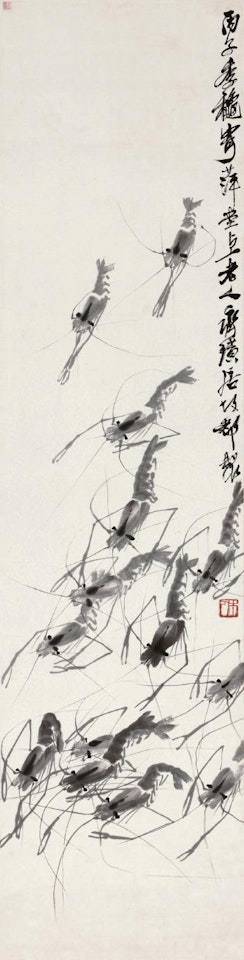 丙子季龝寄萍堂上老人齊璜 故都製